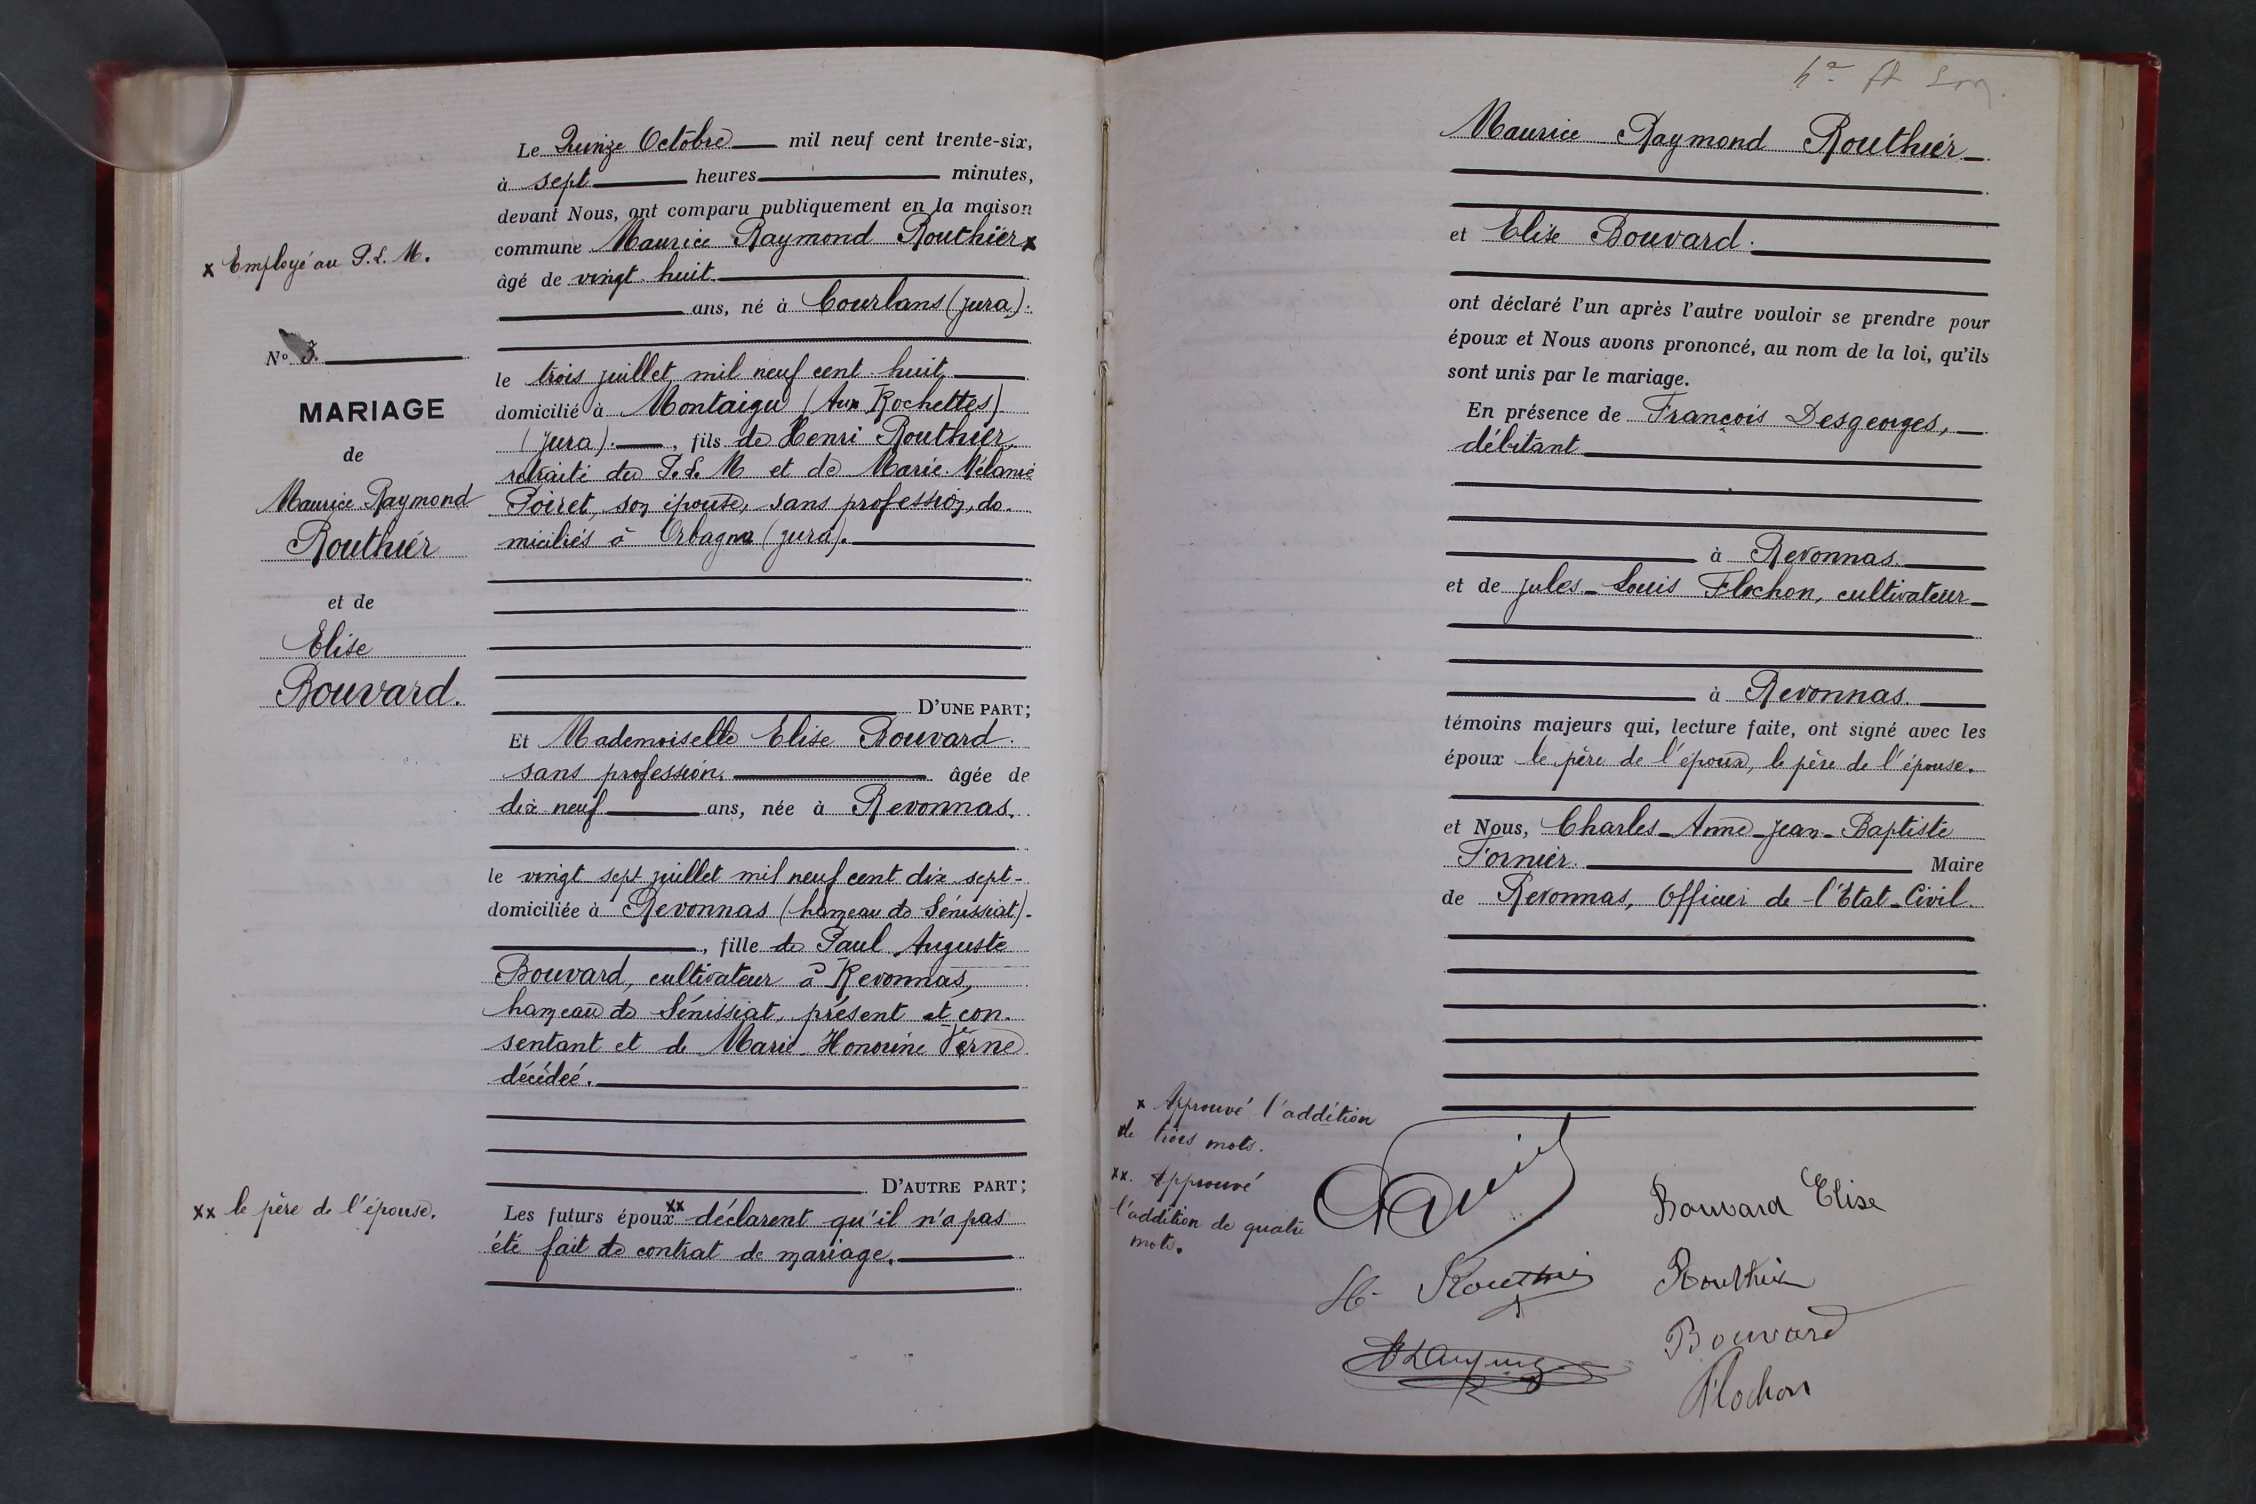 Le Quinze Octobre mil neuf cent trente-six,
à sept heures minutes,
devant Nous, ont comparu publiquement en la maison
commune Maurice Raymond Routhier x
âgé de vingt huit
ans, né à Courlans (Jura).
le trois juillet mil neuf cent huit
domicilié à Montaigu (Aux Rochettes)
(Jura). , fils de Henri Routhier
retraité du P. L. M et de Marie Mélanie
Poiret, son épouse, sans profession, do-
miciliés à Orbagna (Jura).
D'UNE PART;
Et Mademoiselle Elise Bouvard
sans profession, âgée de
dix neuf ans, née à Revonnas.
le vingt sept juillet mil neuf cent dix sept-
domiciliée à Revonnas (hameau de Sénissiat).
, fille de Paul Auguste
Bouvard, cultivateur à Revonnas,
hameau de Sénissiat, présent et con-
sentant et de Marie Honorine Verne
décédée.
D'AUTRE PART;
Les futurs époux xx déclarent qu'il n'a pas
été fait de contrat de mariage.
x Employé au P. L. M.
No 3.
MARIAGE
de
Maurice Raymond
Routhier
et de
Elise
Bouvard.
xx le père de l'épouse.
Maurice Raymond Routhier
et Elise Bouvard.
ont déclaré l'un après l'autre vouloir se prendre pour
époux et Nous avons prononcé, au nom de la loi, qu'ils
sont unis par le mariage.
En présence de François Desgeorges,
débitant
à Revonnas.
et de Jules-Louis Flochon, cultivateur
à Revonnas.
témoins majeurs qui, lecture faite, ont signé avec les
époux le père de l'époux, le père de l'épouse.
et Nous, Charles-Anne-Jean-Baptiste
Fornier. Maire
de Revonnas, Officier de l'Etat-Civil.
x Approuvé l'addition
de trois mots.
xx. Approuvé
l'addition de quatre
mots.
Bouvard Elise
H. Routhier
Routhier
Bouvard
Flochon